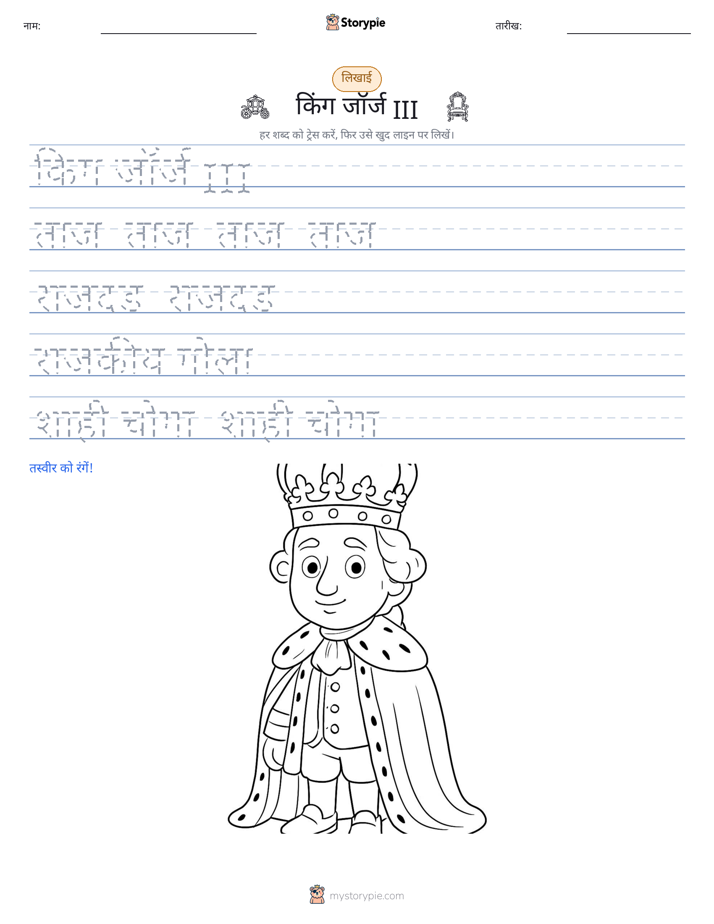 नाम:
Storypie
तारीख:
लिखाई
किंग जॉर्ज III
हर शब्द को ट्रेस करें, फिर उसे खुद लाइन पर लिखें।
किंग जॉर्ज III
ताज ताज ताज ताज
राजदंड राजदंड
राजकीय गोला
शाही चोगा शाही चोगा
तस्वीर को रंगें!
mystorypie.com